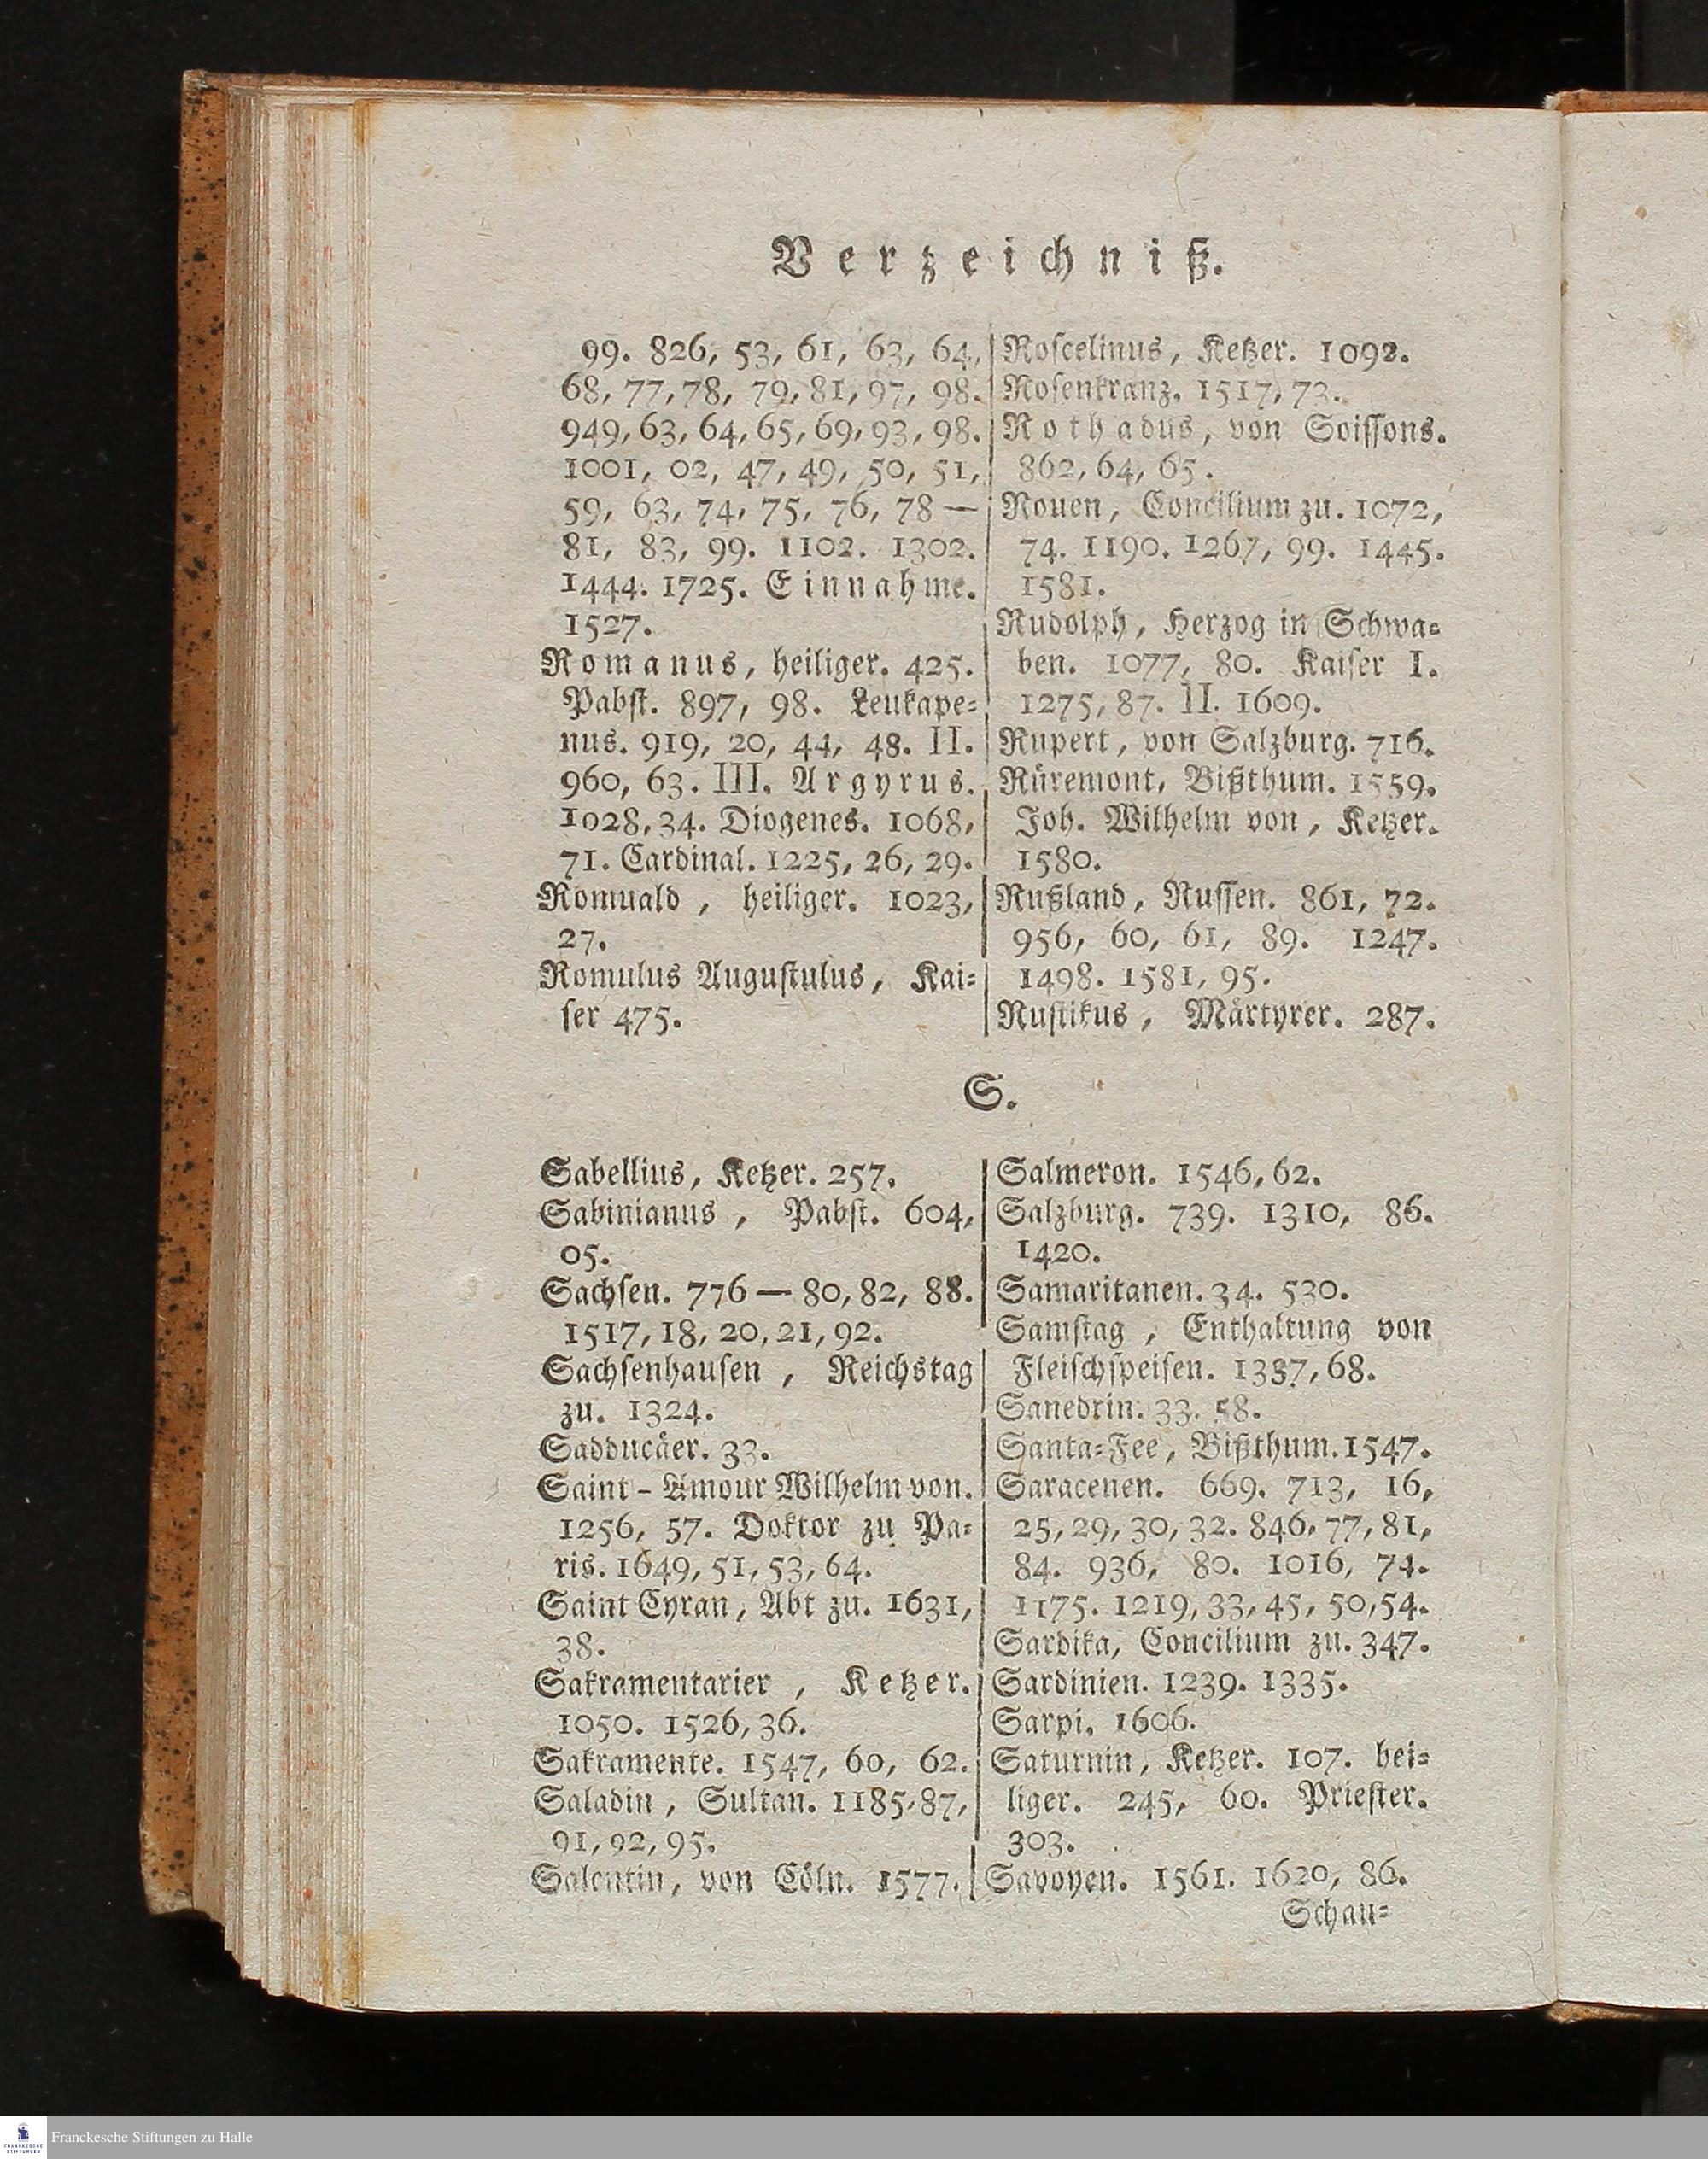 Verzeichniß.
99. 826, 53, 61, 63, 64,
68, 77, 78, 79, 81, 97, 98.
949, 63, 64, 65, 69, 93, 98.
1001, 02, 47, 49, 50, 51,
59, 63, 74, 75, 76, 78 —
81, 83, 99. 1102. 1302.
1444. 1725. Einnahme.
1527.
Romanus, heiliger. 425.
Pabſt. 897, 98. Leukape-
nus. 919, 20, 44, 48. II.
960, 63. III. Argyrus.
1028, 34. Diogenes. 1068,
71. Cardinal. 1225, 26, 29.
Romuald, heiliger. 1023,
27.
Romulus Auguſtulus, Kai-
ſer 475.
Roſcelinus, Ketzer. 1092.
Roſenkranz. 1517, 73.
Rothadus, von Soiſſons.
862, 64, 65.
Rouen, Concilium zu. 1072,
74. 1190. 1267, 99. 1445.
1581.
Rudolph, Herzog in Schwa-
ben. 1077, 80. Kaiſer I.
1275, 87. II. 1609.
Rupert, von Salzburg. 716.
Rüremont, Bißthum. 1559.
Joh. Wilhelm von, Ketzer.
1580.
Rußland, Ruſſen. 861, 72.
956, 60, 61, 89. 1247.
1498. 1581, 95.
Ruſtikus, Märtyrer. 287.
S.
Sabellius, Ketzer. 257.
Sabinianus, Pabſt. 604,
05.
Sachſen. 776 — 80, 82, 88.
1517, 18, 20, 21, 92.
Sachſenhauſen, Reichstag
zu. 1324.
Sadducäer. 33.
Saint-Amour Wilhelm von.
1256, 57. Doktor zu Pa-
ris. 1649, 51, 53, 64.
Saint Cyran, Abt zu. 1631,
38.
Sakramentarier, Ketzer.
1050. 1526, 36.
Sakramente. 1547, 60, 62.
Saladin, Sultan. 1185, 87,
91, 92, 95.
Salentin, von Cöln. 1577.
Salmeron. 1546, 62.
Salzburg. 739. 1310, 86.
1420.
Samaritanen. 34. 530.
Samſtag, Enthaltung von
Fleiſchſpeiſen. 1337, 68.
Sanedrin. 33. 58.
Santa-Fee, Bißthum. 1547.
Saracenen. 669. 713, 16,
25, 29, 30, 32. 846, 77, 81,
84. 936, 80. 1016, 74.
1175. 1219, 33, 45, 50, 54.
Sardika, Concilium zu. 347.
Sardinien. 1239. 1335.
Sarpi. 1606.
Saturnin, Ketzer. 107. hei-
liger. 245, 60. Prieſter.
303.
Savoyen. 1561. 1620, 86.
Schau-
Franckesche Stiftungen zu Halle
FRANCKESCHE
STIFTUNGEN